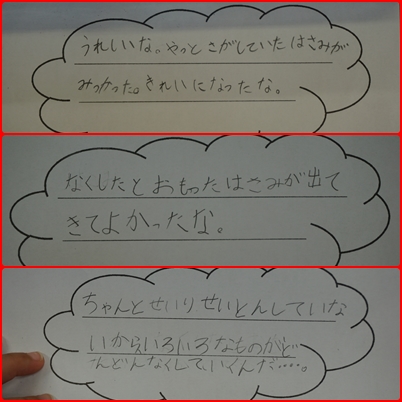 うれしいな。やっとさがしていたはさみが
みつかった。きれいになったな。
なくしたとおもったはさみが出て
きてよかったな。
ちゃんとせいりせいとんしていな
いから、いろいろなものがど
んどんなくしていくんだ……。